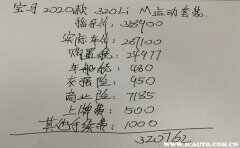 宝马2020款 320Li M运动套装
指导价: 338900
实际车价: 287100
购置税: 24977
车船税: 480
交强险: 950
商业险: 7185
上牌费: 500
其他手续费: 1000
320762
WWW.ICAUTO.COM.CN